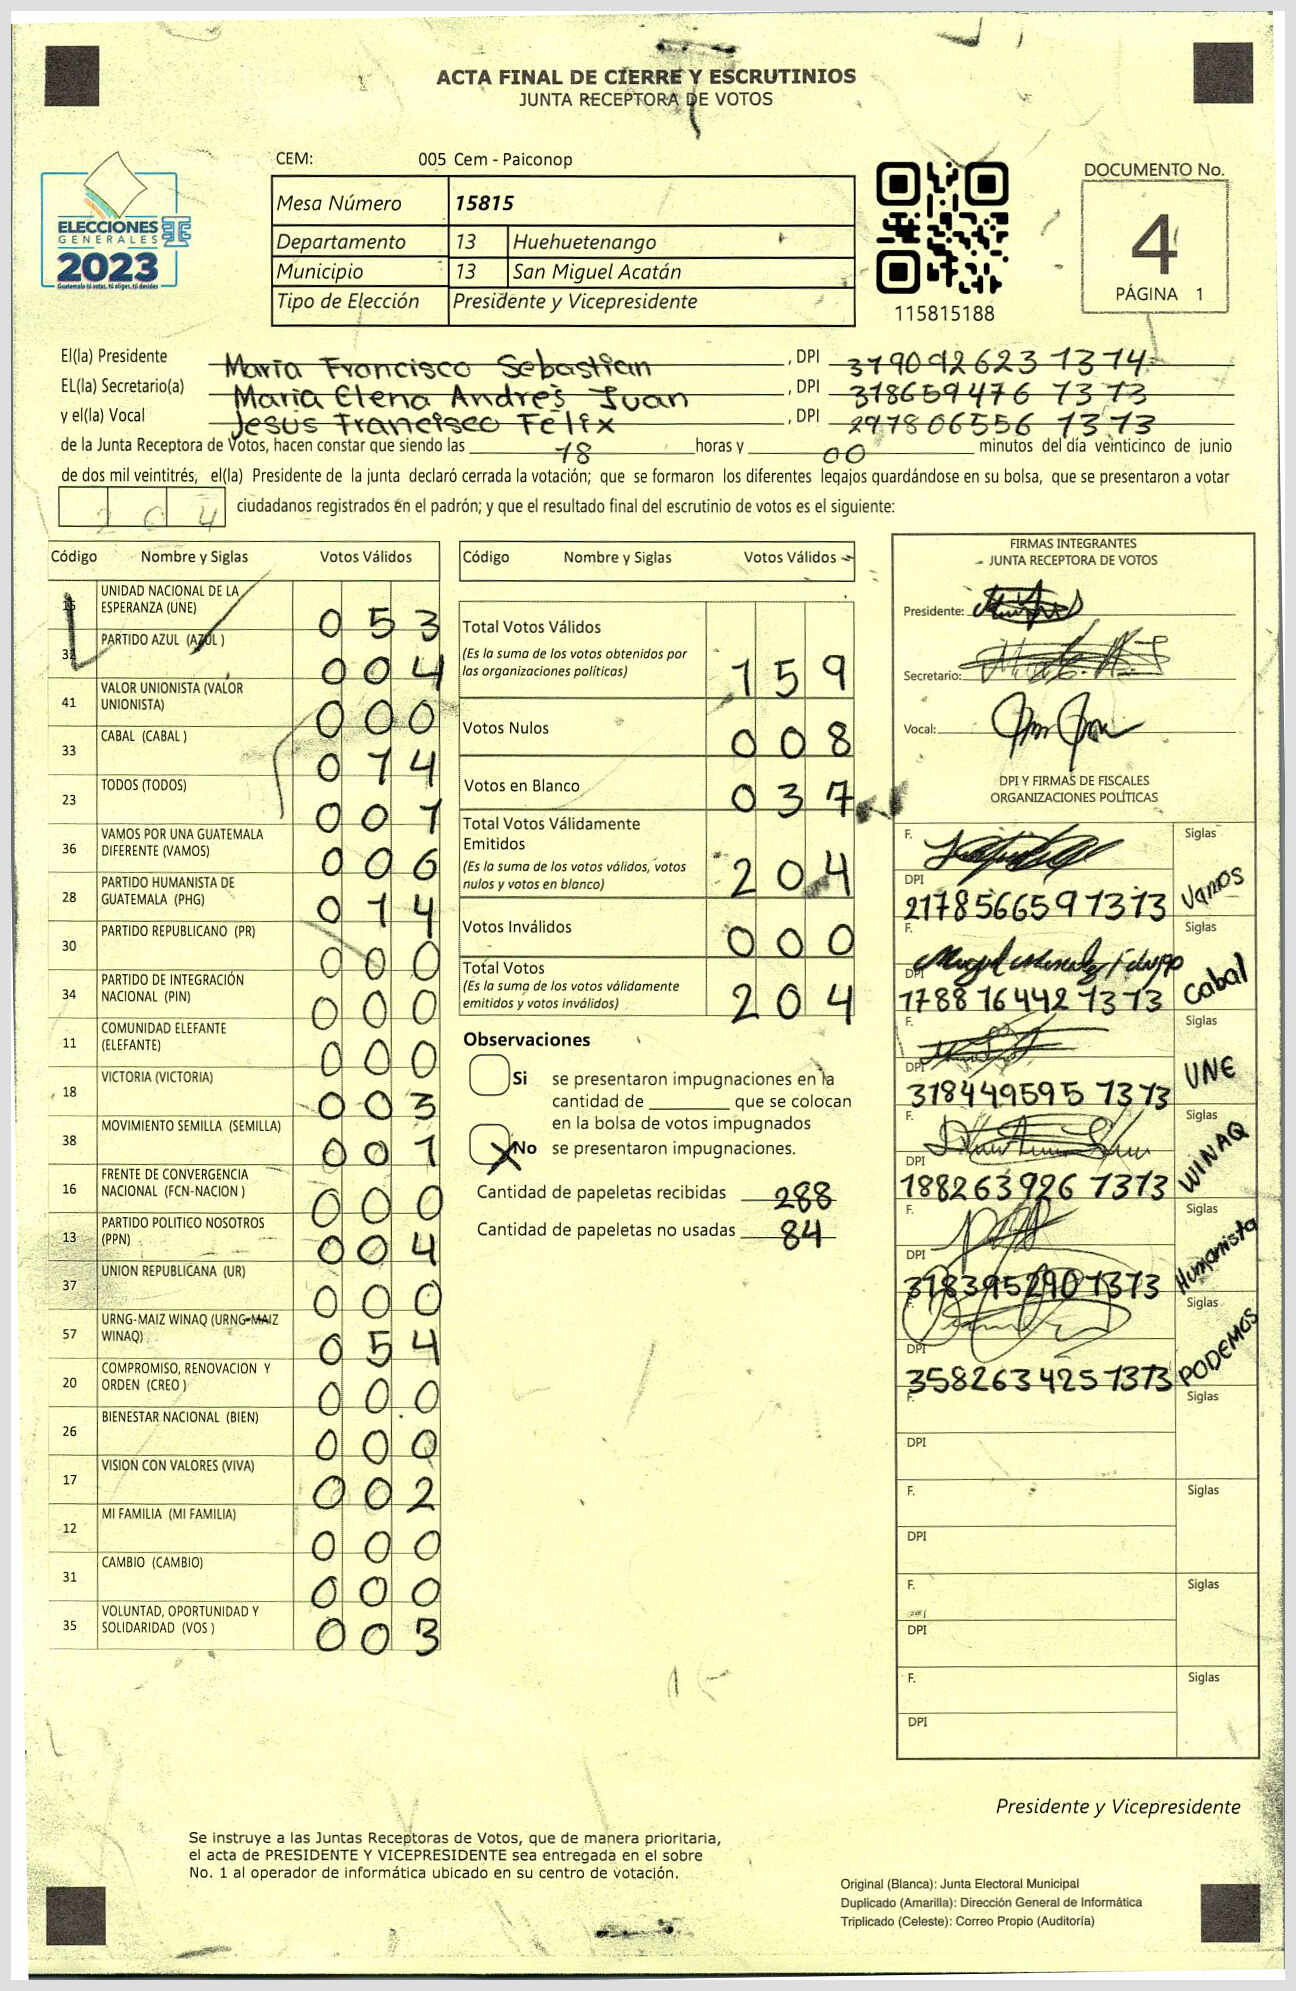 ACTA FINAL DE CIERRE Y ESCRUTINIOS
JUNTA RECEPTORA DE VOTOS
CEM: 005 Cem - Paiconop
DOCUMENTO No.
4
PÁGINA 1
ELECCIONES
GENERALES
2023
Guatemala tú votas, tú eliges, tú decides
Mesa Número 15815
Departamento 13 Huehuetenango
Municipio 13 San Miguel Acatán
Tipo de Elección Presidente y Vicepresidente
115815188
El(la) Presidente Maria Francisco Sebastian , DPI 319092623 1314
EL(la) Secretario(a) Maria Elena Andres Juan , DPI 318659476 1313
y el(la) Vocal Jesus Francisco Felix , DPI 297806556 1313
de la Junta Receptora de Votos, hacen constar que siendo las 18 horas y 00 minutos del día veinticinco de junio
de dos mil veintitrés, el(la) Presidente de la junta declaró cerrada la votación; que se formaron los diferentes legajos guardándose en su bolsa, que se presentaron a votar
204 ciudadanos registrados en el padrón; y que el resultado final del escrutinio de votos es el siguiente:
Código Nombre y Siglas Votos Válidos
15 UNIDAD NACIONAL DE LA ESPERANZA (UNE) 053
32 PARTIDO AZUL (AZUL ) 004
41 VALOR UNIONISTA (VALOR UNIONISTA) 000
33 CABAL (CABAL ) 014
23 TODOS (TODOS) 001
36 VAMOS POR UNA GUATEMALA DIFERENTE (VAMOS) 006
28 PARTIDO HUMANISTA DE GUATEMALA (PHG) 014
30 PARTIDO REPUBLICANO (PR) 000
34 PARTIDO DE INTEGRACIÓN NACIONAL (PIN) 000
11 COMUNIDAD ELEFANTE (ELEFANTE) 000
18 VICTORIA (VICTORIA) 003
38 MOVIMIENTO SEMILLA (SEMILLA) 001
16 FRENTE DE CONVERGENCIA NACIONAL (FCN-NACION ) 000
13 PARTIDO POLITICO NOSOTROS (PPN) 004
37 UNION REPUBLICANA (UR) 000
57 URNG-MAIZ WINAQ (URNG-MAIZ WINAQ) 054
20 COMPROMISO, RENOVACION Y ORDEN (CREO ) 000
26 BIENESTAR NACIONAL (BIEN) 000
17 VISION CON VALORES (VIVA) 002
12 MI FAMILIA (MI FAMILIA) 000
31 CAMBIO (CAMBIO) 000
35 VOLUNTAD, OPORTUNIDAD Y SOLIDARIDAD (VOS ) 003
Código Nombre y Siglas Votos Válidos
Total Votos Válidos
(Es la suma de los votos obtenidos por
las organizaciones políticas) 159
Votos Nulos 008
Votos en Blanco 037
Total Votos Válidamente
Emitidos
(Es la suma de los votos válidos, votos
nulos y votos en blanco) 204
Votos Inválidos 000
Total Votos
(Es la suma de los votos válidamente
emitidos y votos inválidos) 204
Observaciones
Si se presentaron impugnaciones en la
cantidad de ________ que se colocan
en la bolsa de votos impugnados
X No se presentaron impugnaciones.
Cantidad de papeletas recibidas 288
Cantidad de papeletas no usadas 84
FIRMAS INTEGRANTES
JUNTA RECEPTORA DE VOTOS
Presidente:
Secretario:
Vocal:
DPI Y FIRMAS DE FISCALES
ORGANIZACIONES POLÍTICAS
F. Siglas
DPI Vamos
217856659 1313
F. Siglas
DPI Cabal
1788 16442 1313
F. Siglas
DPI UNE
318449595 1313
F. Siglas
DPI WINAQ
188263926 1313
F. Siglas
DPI Humanista
318395290 1313
F. Siglas
DPI PODEMOS
358263425 1313
F. Siglas
DPI
F. Siglas
DPI
F. Siglas
DPI
F. Siglas
DPI
Presidente y Vicepresidente
Se instruye a las Juntas Receptoras de Votos, que de manera prioritaria,
el acta de PRESIDENTE Y VICEPRESIDENTE sea entregada en el sobre
No. 1 al operador de informática ubicado en su centro de votación.
Original (Blanca): Junta Electoral Municipal
Duplicado (Amarilla): Dirección General de Informática
Triplicado (Celeste): Correo Propio (Auditoría)